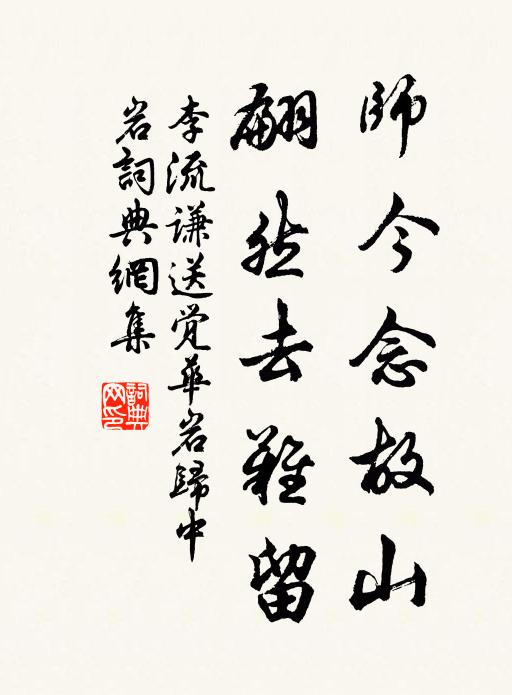 師今念故山
翩然去難留
李流谦送覚華岩歸中
岩詞典網集
詞典
网印